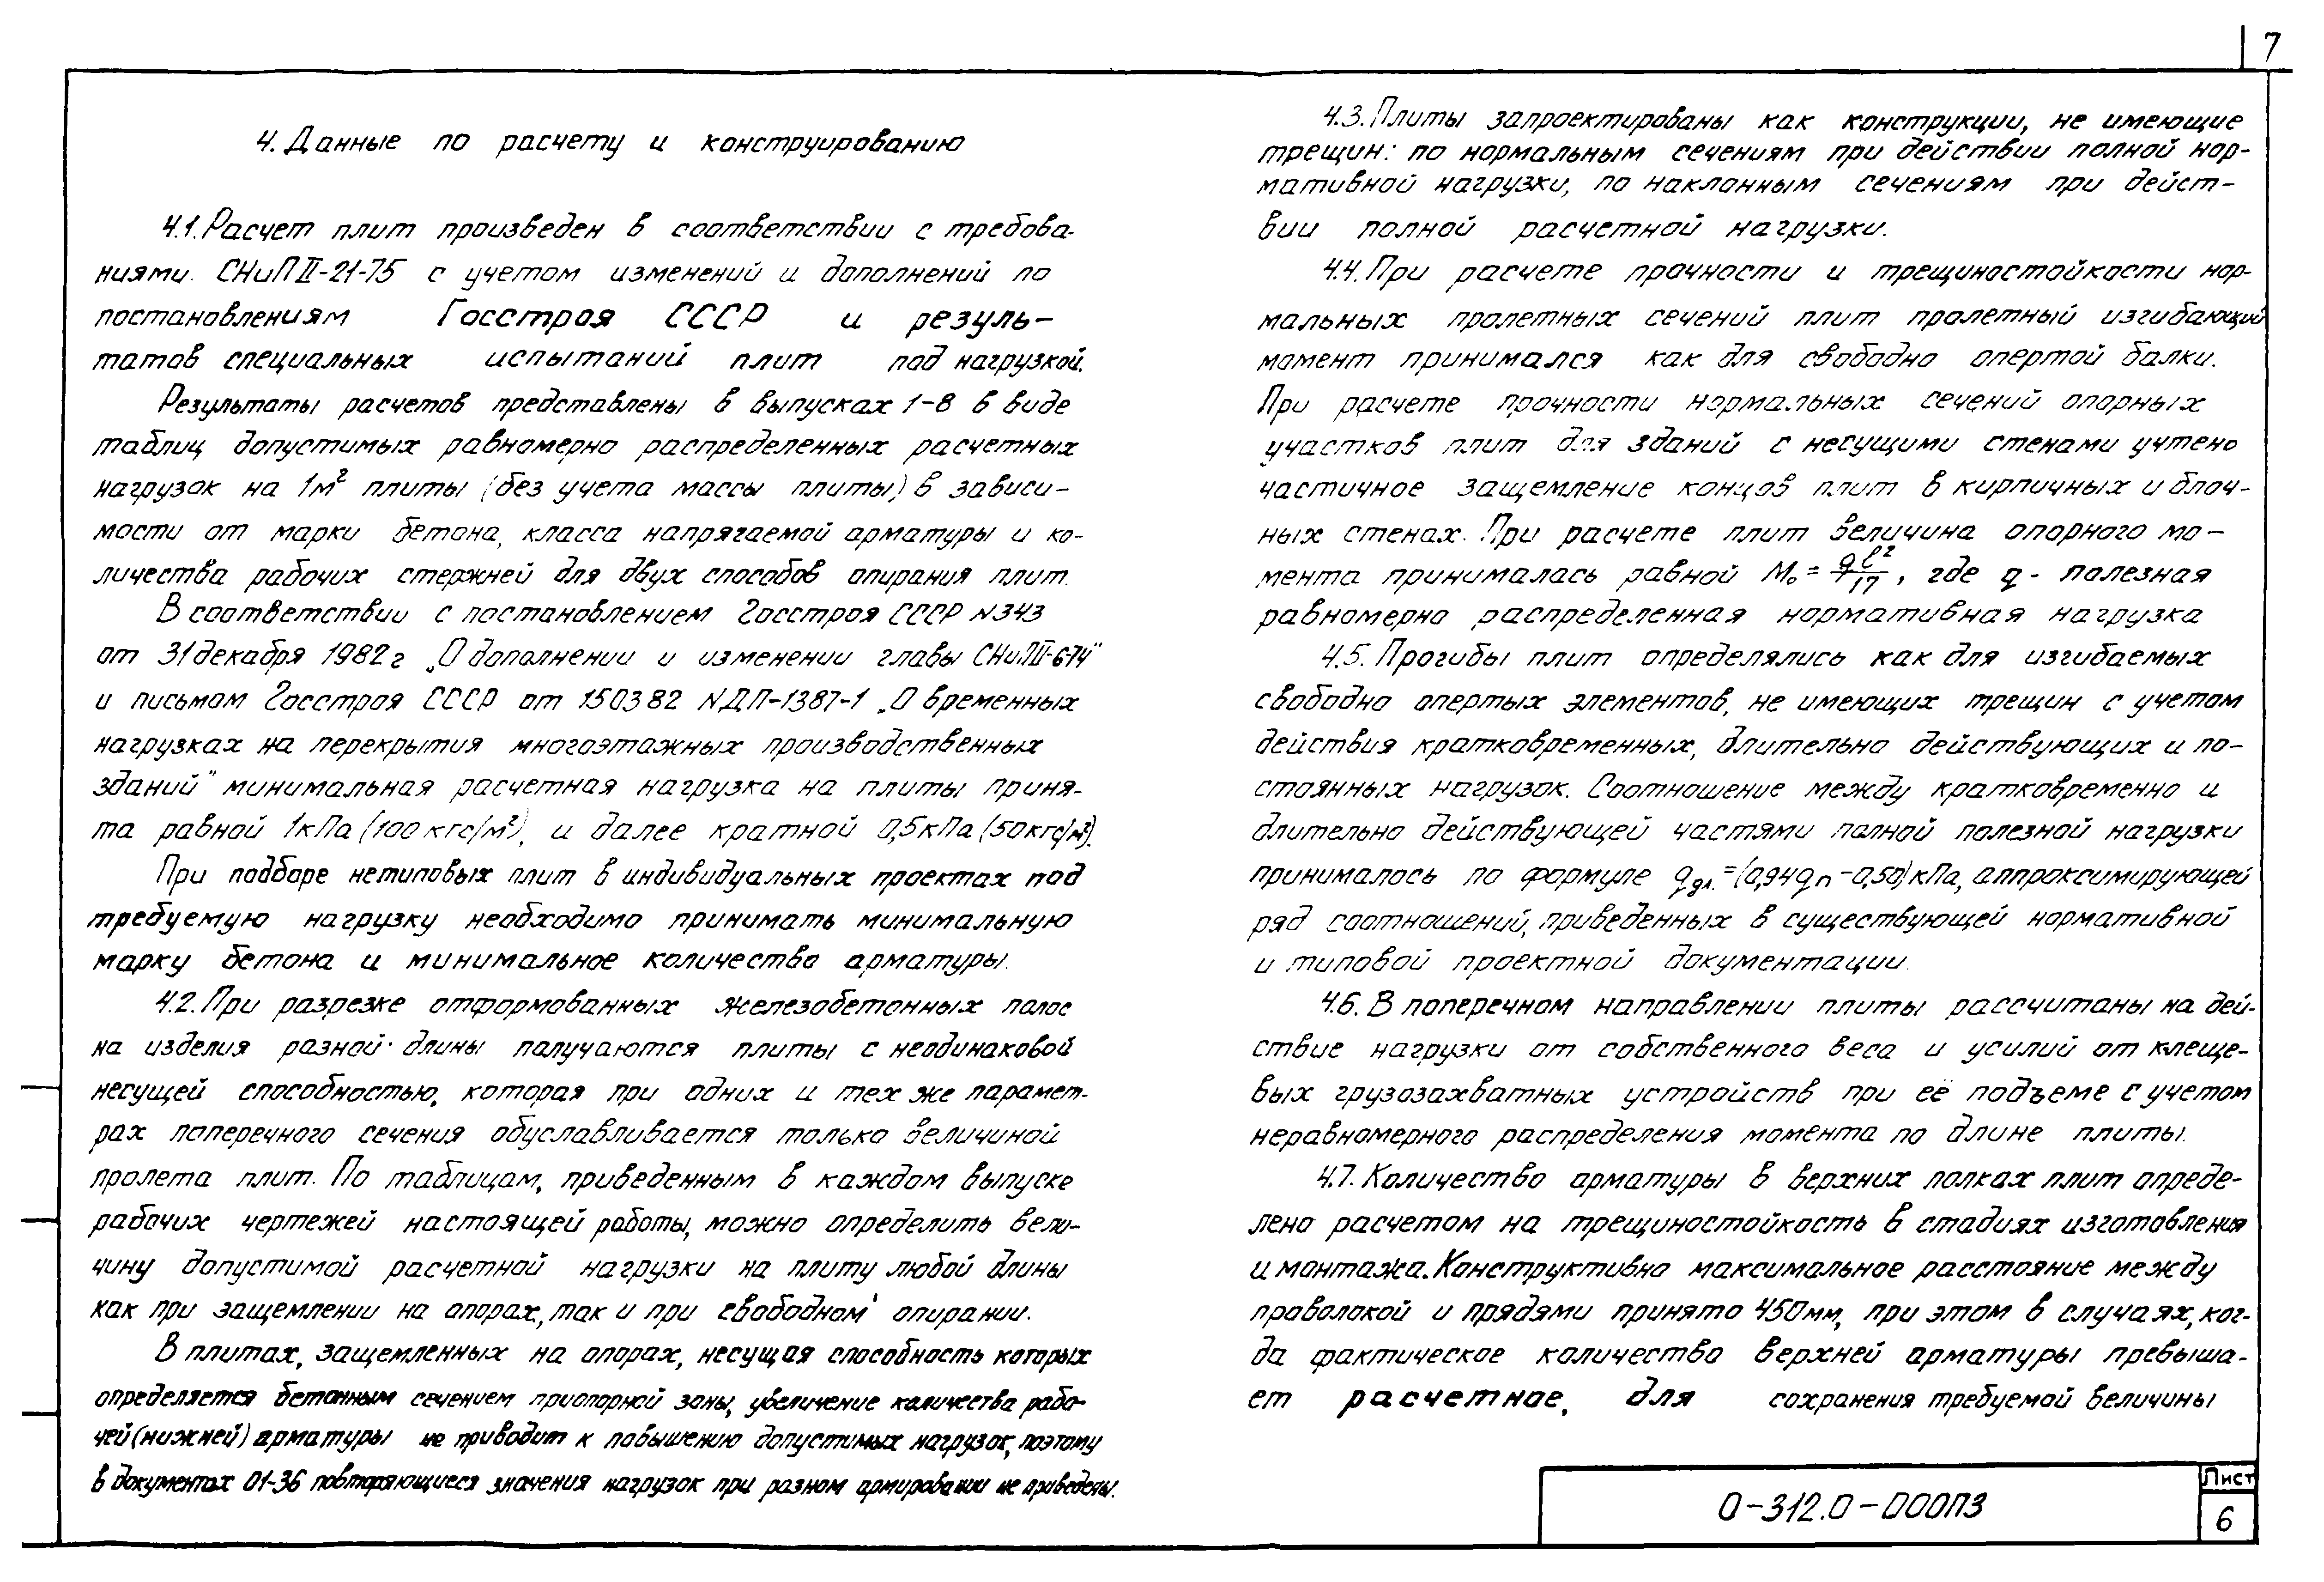 7
4. Данные по расчету и конструированию
4.1. Расчет плит произведен в соответствии с требова-
ниями. СНиП II-21-75 с учетом изменений и дополнений по
постановлениям Госстроя СССР и резуль-
татов специальных испытаний плит под нагрузкой.
Результаты расчетов представлены в выпусках 1-8 в виде
таблиц допустимых равномерно распределенных расчетных
нагрузок на 1м² плиты (без учета массы плиты) в зависи-
мости от марки бетона, класса напрягаемой арматуры и ко-
личества рабочих стержней для двух способов опирания плит.
В соответствии с постановлением Госстроя СССР N343
от 31 декабря 1982г „О дополнении и изменении главы СНиП II-6-74"
и письмом Госстроя СССР от 150382 NДП-1387-1 „О временных
нагрузках на перекрытия многоэтажных производственных
зданий" минимальная расчетная нагрузка на плиты приня-
та равной 1кПа (100 кгс/м²), и далее кратной 0,5кПа (50кгс/м²).
При подборе нетиповых плит в индивидуальных проектах под
требуемую нагрузку необходимо принимать минимальную
марку бетона и минимальное количество арматуры.
4.2. При разрезке отформованных железобетонных полос
на изделия разной длины получаются плиты с неодинаковой
несущей способностью, которая при одних и тех же парамет-
рах поперечного сечения обуславливается только величиной
пролета плит. По таблицам, приведенным в каждом выпуске
рабочих чертежей настоящей работы, можно определить вели-
чину допустимой расчетной нагрузки на плиту любой длины
как при защемлении на опорах, так и при свободном опирании.
В плитах, защемленных на опорах, несущая способность которых
определяется бетонным сечением приопорной зоны, увеличение количества рабо-
чей (нижней) арматуры не приводит к повышению допустимых нагрузок, поэтому
в документах 01-36 повторяющиеся значения нагрузок при разном армировании не приведены.
4.3. Плиты запроектированы как конструкции, не имеющие
трещин: по нормальным сечениям при действии полной нор-
мативной нагрузки, по наклонным сечениям при дейст-
вии полной расчетной нагрузки.
4.4. При расчете прочности и трещиностойкости нор-
мальных пролетных сечений плит пролетный изгибающий
момент принимался как для свободно опертой балки.
При расчете прочности нормальных сечений опорных
участков плит для зданий с несущими стенами учтено
частичное защемление концов плит в кирпичных и блоч-
ных стенах. При расчете плит величина опорного мо-
мента принималась равной M₀ = ql²/17, где q - полезная
равномерно распределенная нормативная нагрузка
4.5. Прогибы плит определялись как для изгибаемых
свободно опертых элементов, не имеющих трещин с учетом
действия кратковременных, длительно действующих и по-
стоянных нагрузок. Соотношение между кратковременно и
длительно действующей частями полной полезной нагрузки
принималось по формуле qдл. = (0,94qп - 0,50) кПа, аппроксимирующей
ряд соотношений, приведенных в существующей нормативной
и типовой проектной документации.
4.6. В поперечном направлении плиты рассчитаны на дей-
ствие нагрузки от собственного веса и усилий от клеще-
вых грузозахватных устройств при её подъеме с учетом
неравномерного распределения момента по длине плиты.
4.7. Количество арматуры в верхних полках плит опреде-
лено расчетом на трещиностойкость в стадиях изготовления
и монтажа. Конструктивно максимальное расстояние между
проволокой и прядями принято 450мм, при этом в случаях, ког-
да фактическое количество верхней арматуры превыша-
ет расчетное, для сохранения требуемой величины
0-312.0-000ПЗ
Лист
6